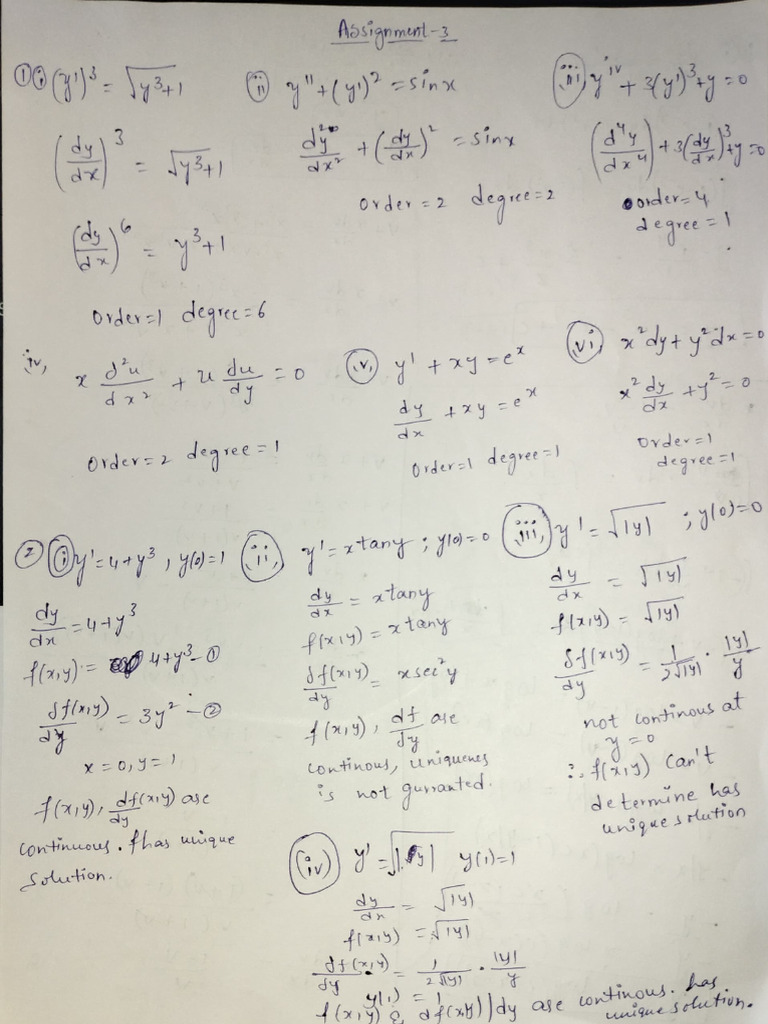 Assignment-3
① ⓘ (y')³ = √y³+1
(dy/dx)³ = √y³+1
(dy/dx)⁶ = y³+1
order=1 degree=6
ⓘⓘ y'' + (y')² = sinx
d²y/dx² + (dy/dx)² = sinx
order=2 degree=2
ⓘⓘⓘ y^iv + 3(y')³+y=0
(d⁴y/dx⁴) + 3(dy/dx)³+y=0
order=4
degree=1
iv, x d²u/dx² + u du/dy = 0
order=2 degree=1
(v) y' + xy = e^x
dy/dx + xy = e^x
order=1 degree=1
(vi) x²dy + y²dx=0
x² dy/dx + y² = 0
order=1
degree=1
② (i) y'=4+y³, y(0)=1
dy/dx = 4+y³
f(x,y) = 4+y³ -①
δf(x,y)/dy = 3y² -②
x=0, y=1
f(x,y), df(x,y)/dy are
continuous. f has unique
solution.
(ii, y' = x tany ; y(0)=0
dy/dx = x tany
f(x,y) = x tany
δf(x,y)/dy = x sec²y
f(x,y), df/dy are
continous, uniquenes
is not gurranted.
(iii, y' = √|y| ; y(0)=0
dy/dx = √|y|
f(x,y) = √|y|
δf(x,y)/dy = 1/2√|y| · |y|/y
not continous at
y=0
∴ f(x,y) can't
determine has
unique solution
(iv) y' = √|y| y(1)=1
dy/dx = √|y|
f(x,y) = √|y|
df(x,y)/dy = 1/2√|y| · |y|/y
y(1) = 1
f(x,y) & df(x,y)|dy are continous. has
unique solution.